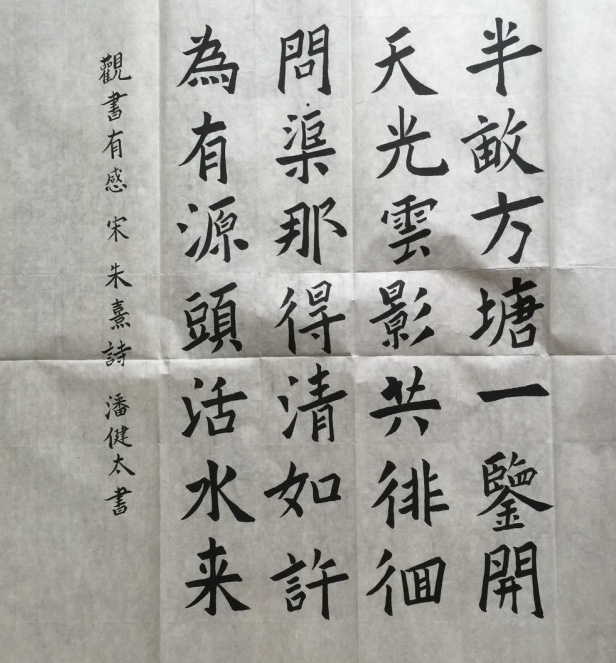 半畝方塘一鑒開
天光雲影共徘徊
問渠那得清如許
為有源頭活水来
觀書有感 宋 朱熹詩 潘健太書